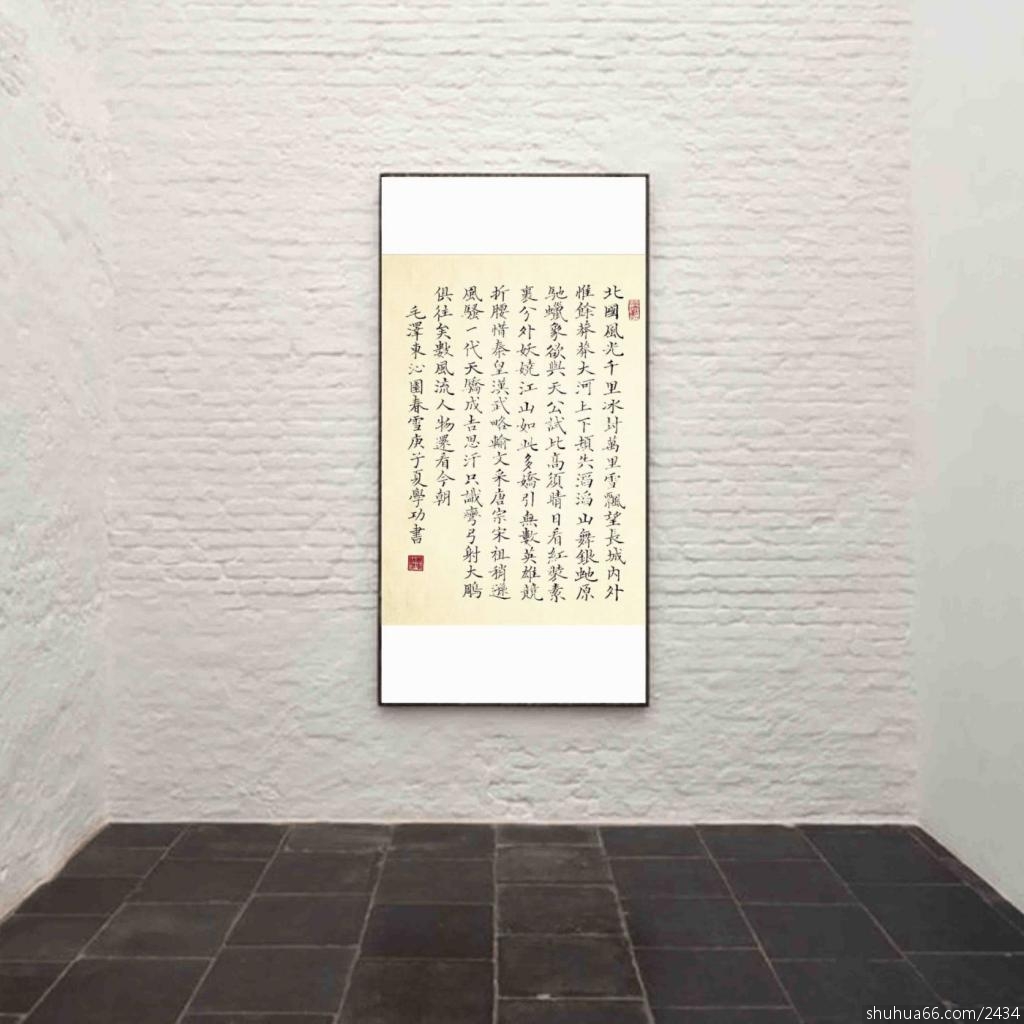 北國風光千里冰封萬里雪飄望長城内外
惟餘莽莽大河上下頓失滔滔山舞銀虵原
馳蠟象欲與天公試比高須晴日看紅裝素
裹分外妖嬈江山如此多嬌引無數英雄競
折腰惜秦皇漢武略輸文采唐宗宋祖稍遜
風騷一代天驕成吉思汗只識彎弓射大鵰
俱往矣數風流人物還看今朝
毛澤東沁園春雪庚子夏學功書
shuhua66.com/2434